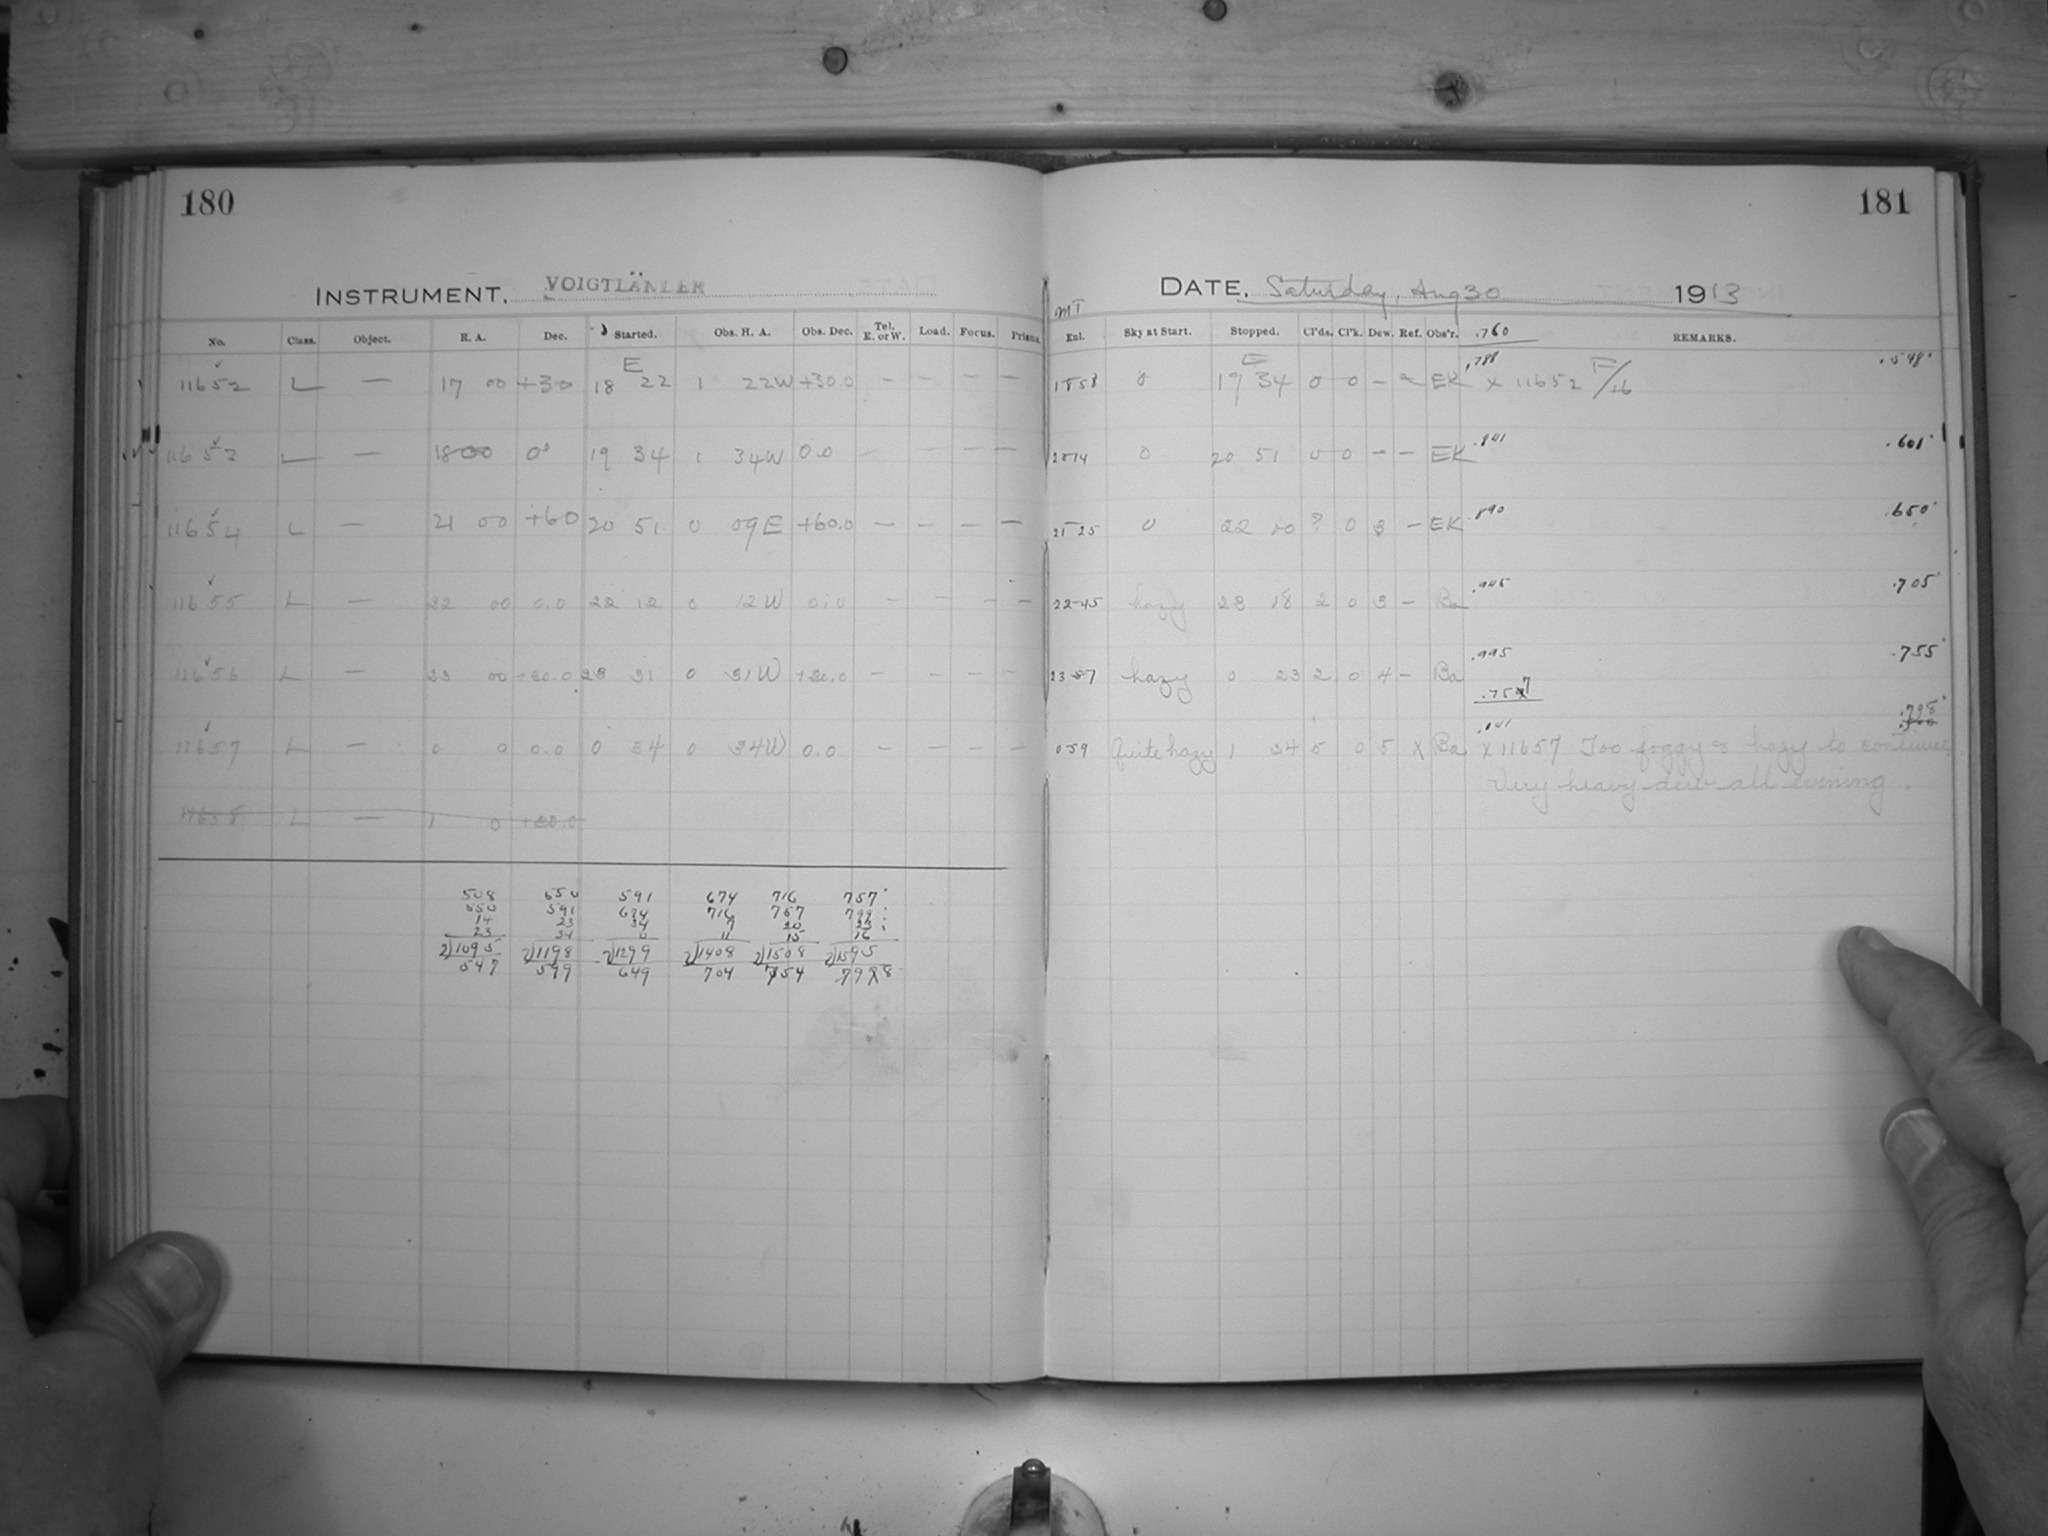 180
181
INSTRUMENT, VOIGTLÄNDER
DATE, Saturday, Aug 30 1913
MT
No. Class. Object. R. A. Dec. Started. Obs. H. A. Obs. Dec. Tel. E. or W. Load. Focus. Prisms. Enl. Sky at Start. Stopped. Cl'ds. Cl'k. Dew. Ref. Obs'r. .760 REMARKS.
E E .788 .548
11652 L — 17 00 +30 18 22 1 22W +30.0 — — — — 1858 0 19 34 0 0 — EK x 11652 F/16
.841 .601
11653 L — 18 00 00 19 34 1 34W 0.0 — — — — 2014 0 20 51 0 0 — — EK
.890 .650
11654 L — 21 00 +60 20 51 0 09E +60.0 — — — — 21 25 0 22 00 ? 0 3 — EK
.945 .705
11655 L — 22 00 0.0 22 12 0 12W 0.0 — — — — 22-45 hazy 23 18 2 0 3 — Ba
.995 .755
11656 L — 23 00 +30.0 23 31 0 31W +30.0 — — — — 23 57 hazy 0 23 2 0 4 — Ba
.757
.041 .798
11657 L — 0 0 0.0 0 34 0 34W 0.0 — — — — 0 59 Quite hazy 1 34 5 0 5 X Ba x 11657 Too foggy & hazy to continue
Very heavy dew all evening.
11658 L — 1 0 +30.0
508 550 591 674 716 757
550 591 674 716 757 799
14 23 34 9 20 23
23 34 0 11 15 16
2)1095 2)1198 2)1299 2)1408 2)1508 2)1595
547 599 649 704 754 798